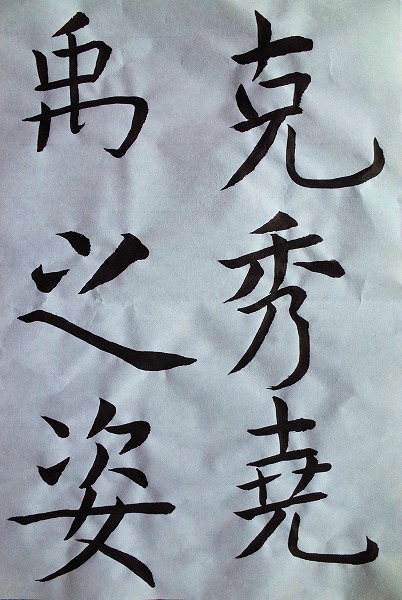 克秀堯
禹之姿